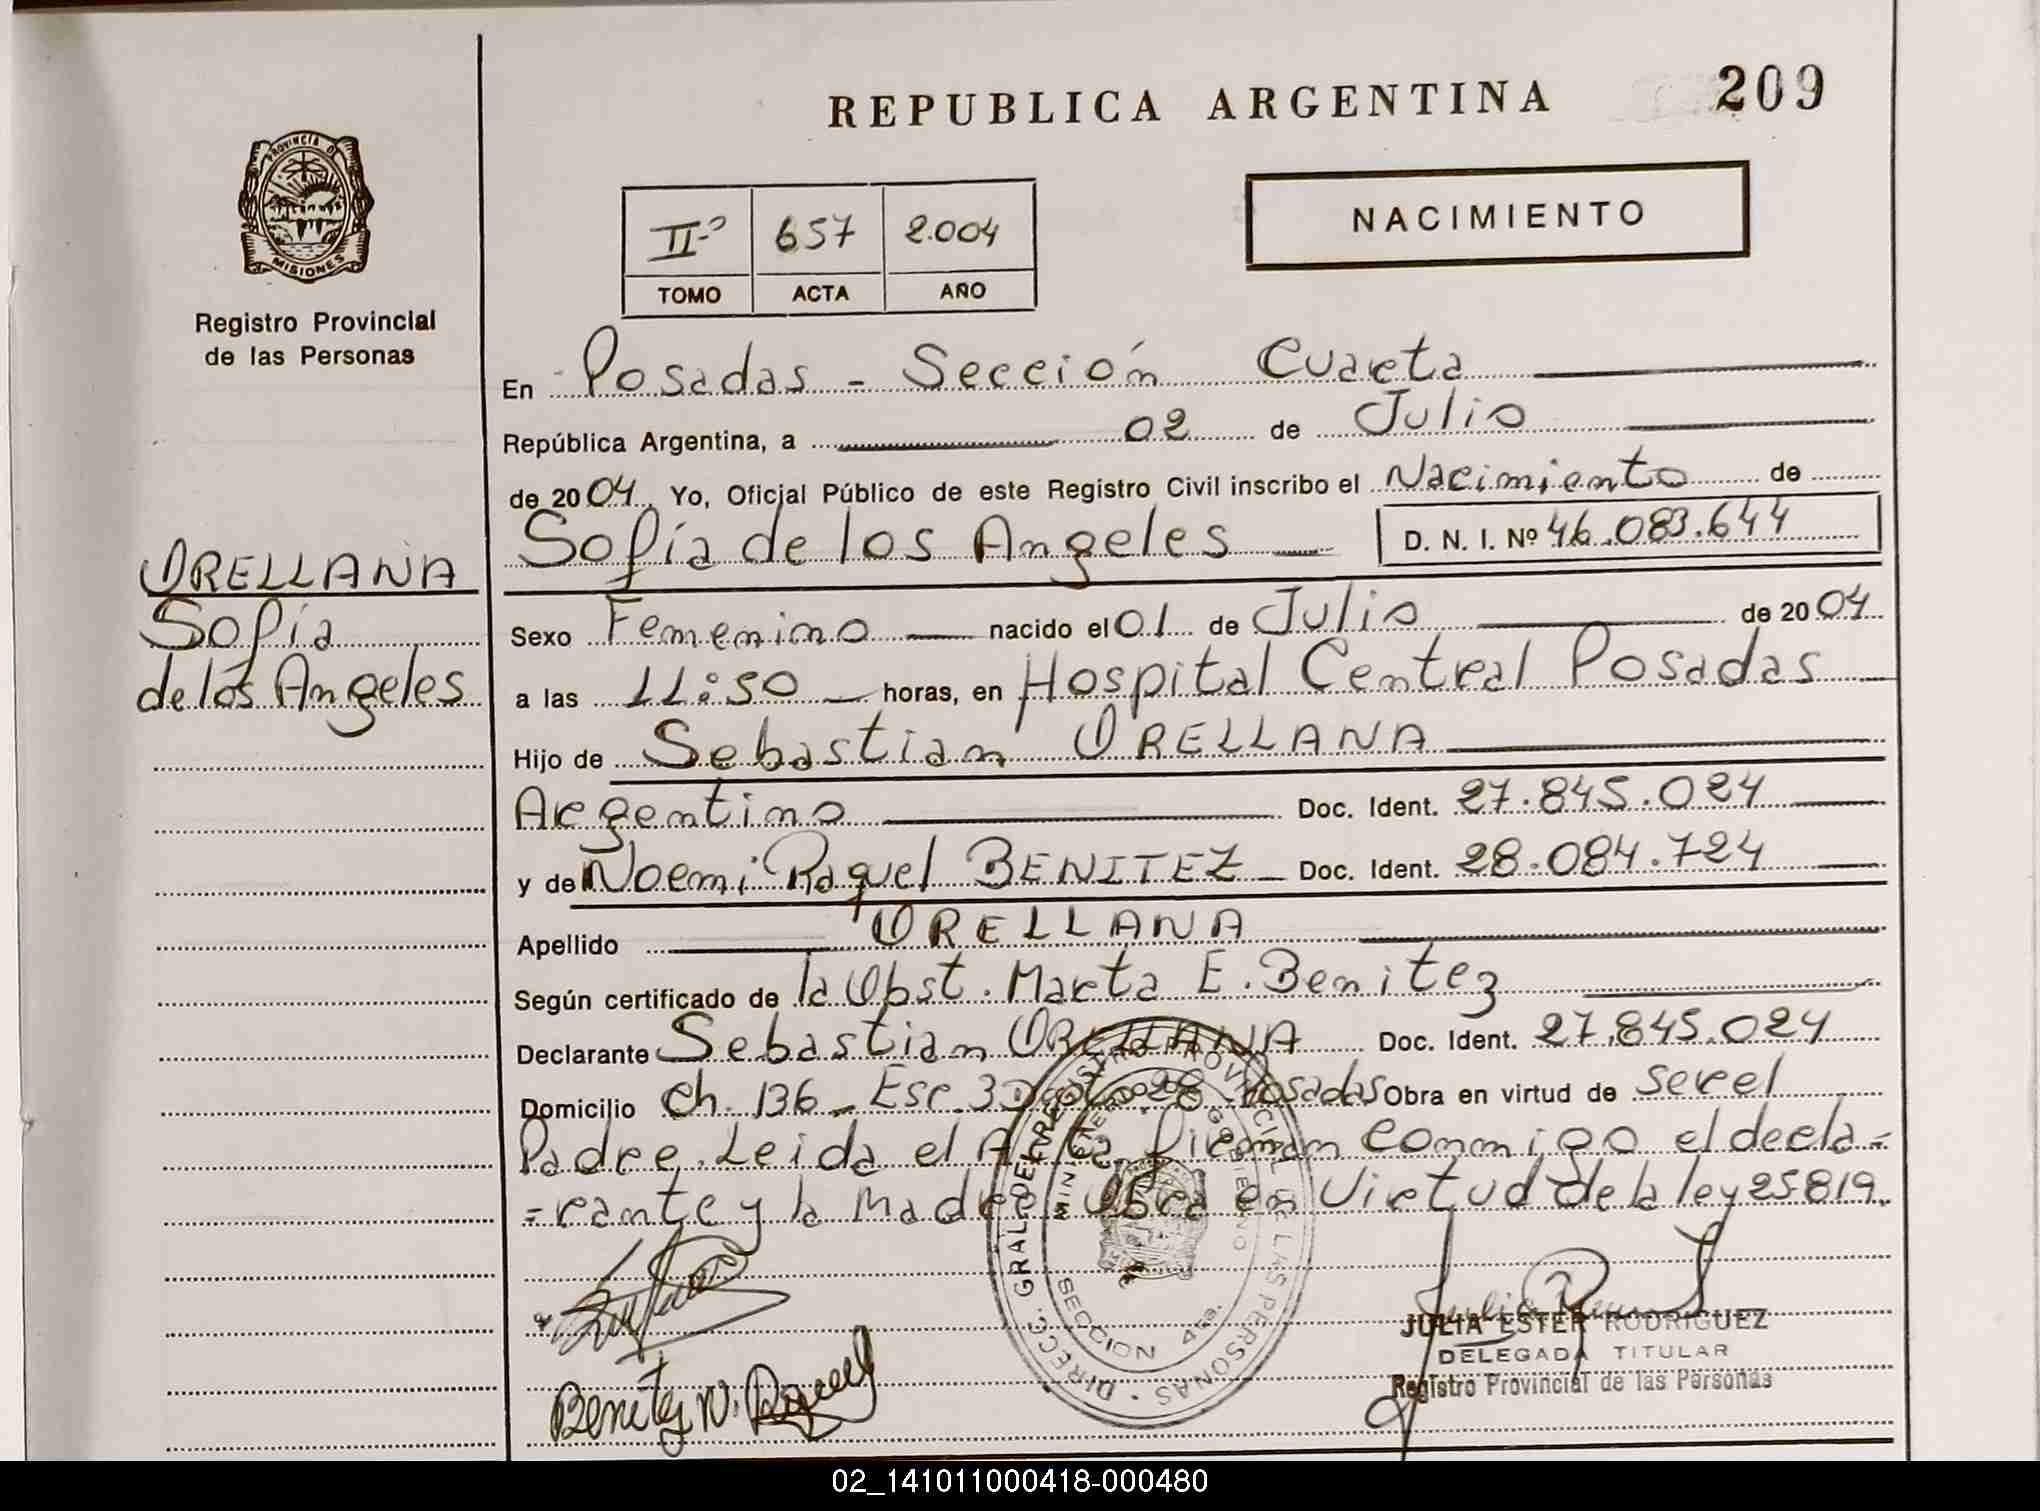 REPUBLICA ARGENTINA
209
PROVINCIA DE
MISIONES
Registro Provincial
de las Personas
II-º 657 2.004
TOMO ACTA AÑO
NACIMIENTO
En Posadas - Sección Cuarta
República Argentina, a 02 de Julio
de 2004. Yo, Oficial Público de este Registro Civil inscribo el Nacimiento de
Sofía de los Angeles D. N. I. Nº 46.083.644
ORELLANA
Sofía
de los Angeles
Sexo Femenino nacido el 01 de Julio de 2004
a las 11:50 horas, en Hospital Central Posadas
Hijo de Sebastian ORELLANA
Argentino Doc. Ident. 27.845.024
y de Noemi Raquel BENITEZ Doc. Ident. 28.084.724
Apellido ORELLANA
Según certificado de la Obst. Marta E. Benitez
Declarante Sebastian ORELLANA Doc. Ident. 27.845.024
Domicilio Ch. 136 - Esc. 3 28 Posadas Obra en virtud de ser el
Padre. Leida el Acta, firman conmigo el decla=
=rante y la Madre. Obra en Virtud de la ley 25819.
DIRECC. GRAL. DEL REGISTRO PROVINCIAL DE LAS PERSONAS
MINISTERIO DE GOBIERNO
SECCION 4ta.
Benitez N. Raquel
JULIA ESTER RODRIGUEZ
DELEGADA TITULAR
Registro Provincial de las Personas
02_141011000418-000480